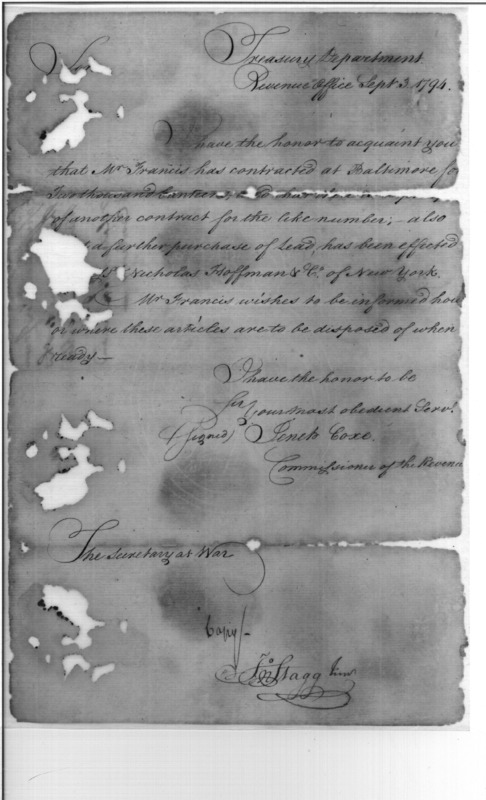 Treasury Department
Revenue Office Sept 3. 1794.
Sir
I have the honor to acquaint you
that Mr Francis has contracted at Baltimore for
Ten thousand Canteens, and
of another contract for the like number; – also
a further purchase of Lead has been effected
Nicholas Hoffman & Co. of New York.
Mr Francis wishes to be informed how
or where these articles are to be disposed of when
ready —
I have the honor to be
Sir
your most obedient Servt.
(signed) Tench Coxe.
Commissioner of the Revenue
The Secretary at War
Copy/–
Jno Stagg Junr